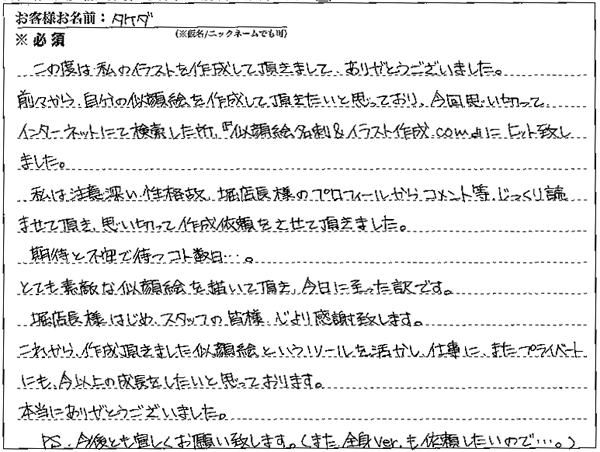 お客様お名前：タケダ
※必須 (※仮名/ニックネームでも可)
この度は私のイラストを作成して頂きまして、ありがとうございました。
前々から、自分の似顔絵を作成して頂きたいと思っており、今回思い切って、
インターネットにて検索した所、『似顔絵名刺&イラスト作成.com』にヒット致し
ました。
私は注意深い性格故、堀店長様のプロフィールからコメント等、じっくり読
ませて頂き、思い切って作成依頼をさせて頂きました。
期待と不安で待つコト数日…。
とても素敵な似顔絵を描いて頂き、今日に至った訳です。
堀店長様はじめ、スタッフの皆様、心より感謝致します。
これから、作成頂きました似顔絵というツールを活かし、仕事に、またプライベート
にも、今以上の成長をしたいと思っております。
本当にありがとうございました。
PS.今後とも宜しくお願い致します。(また、全身ver.も依頼したいので…。)